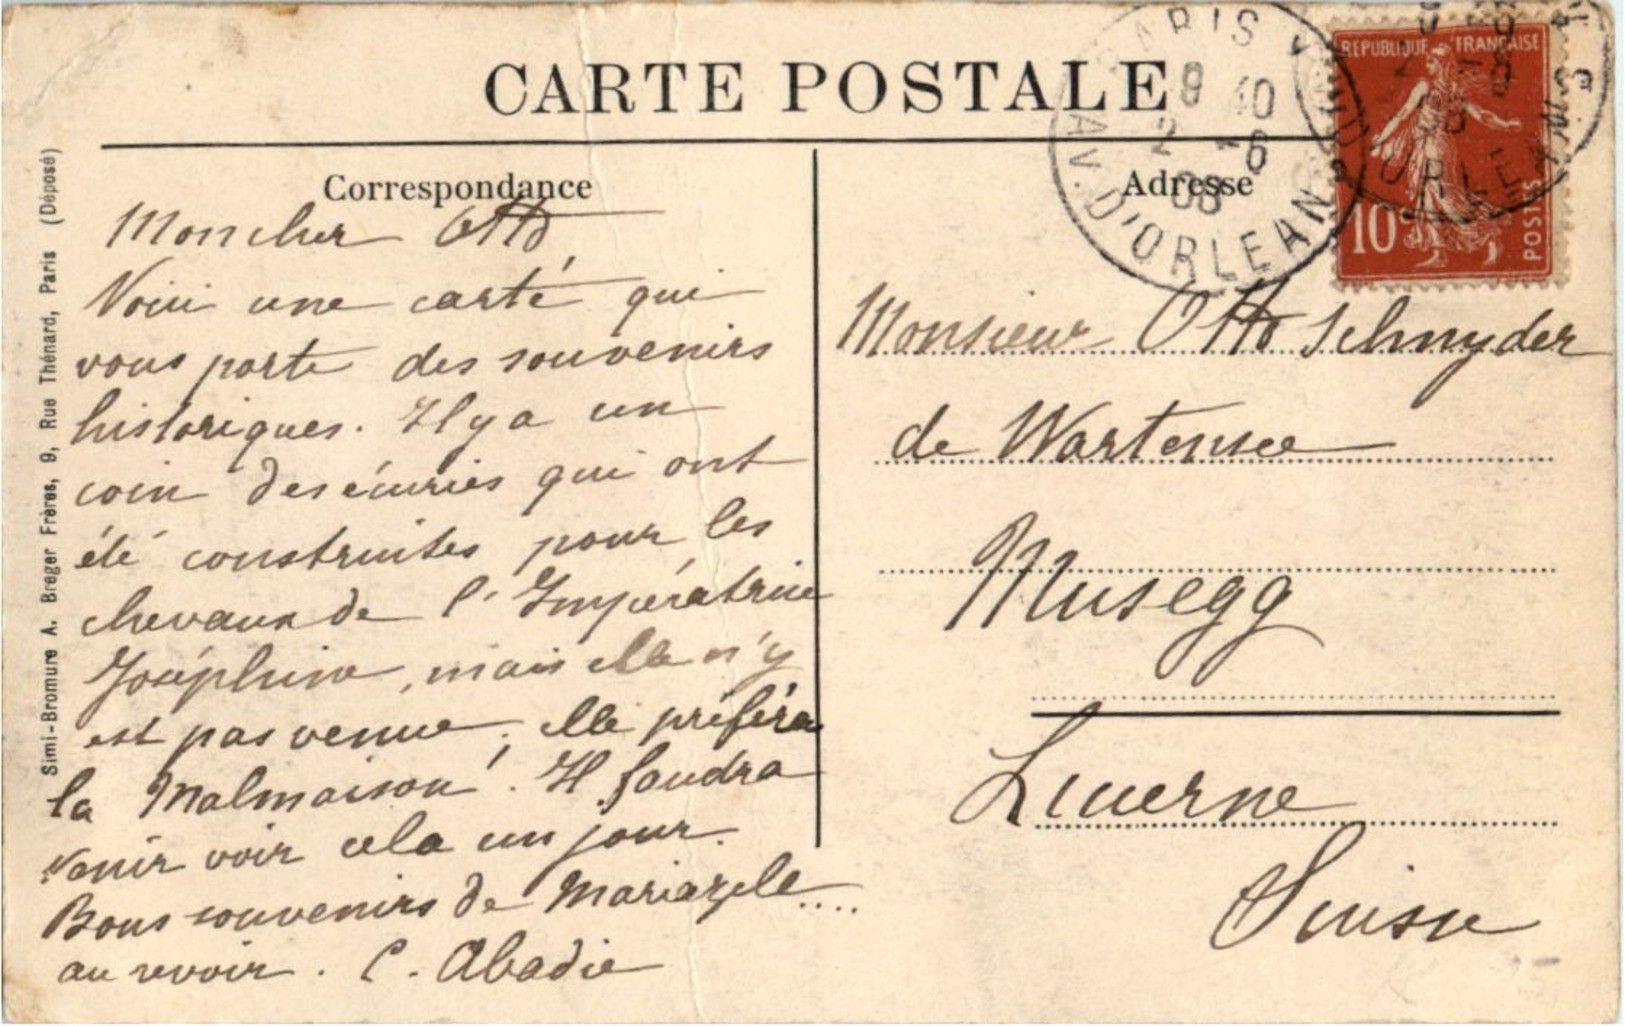 CARTE POSTALE
Correspondance
Mon cher Otto
Voici une carte qui
vous porte des souvenirs
historiques. Il y a un
coin des écuries qui ont
été construites pour les
chevaux de l'Impératrice
Joséphine, mais elle n'y
est pas venue, elle préféra
la Malmaison! Il faudra
venir voir cela un jour.
Bons souvenirs de Mariazele....
au revoir. C. Abadie
Adresse
Monsieur Otto Schnyder
de Wartensee
Musegg
Lucerne
Suisse
Simi-Bromure A. Breger Frères, 9, Rue Thénard, Paris (Déposé)
REPUBLIQUE FRANÇAISE
10
POSTES
PARIS
8 40
2 - 6
08
AV. D'ORLEANS